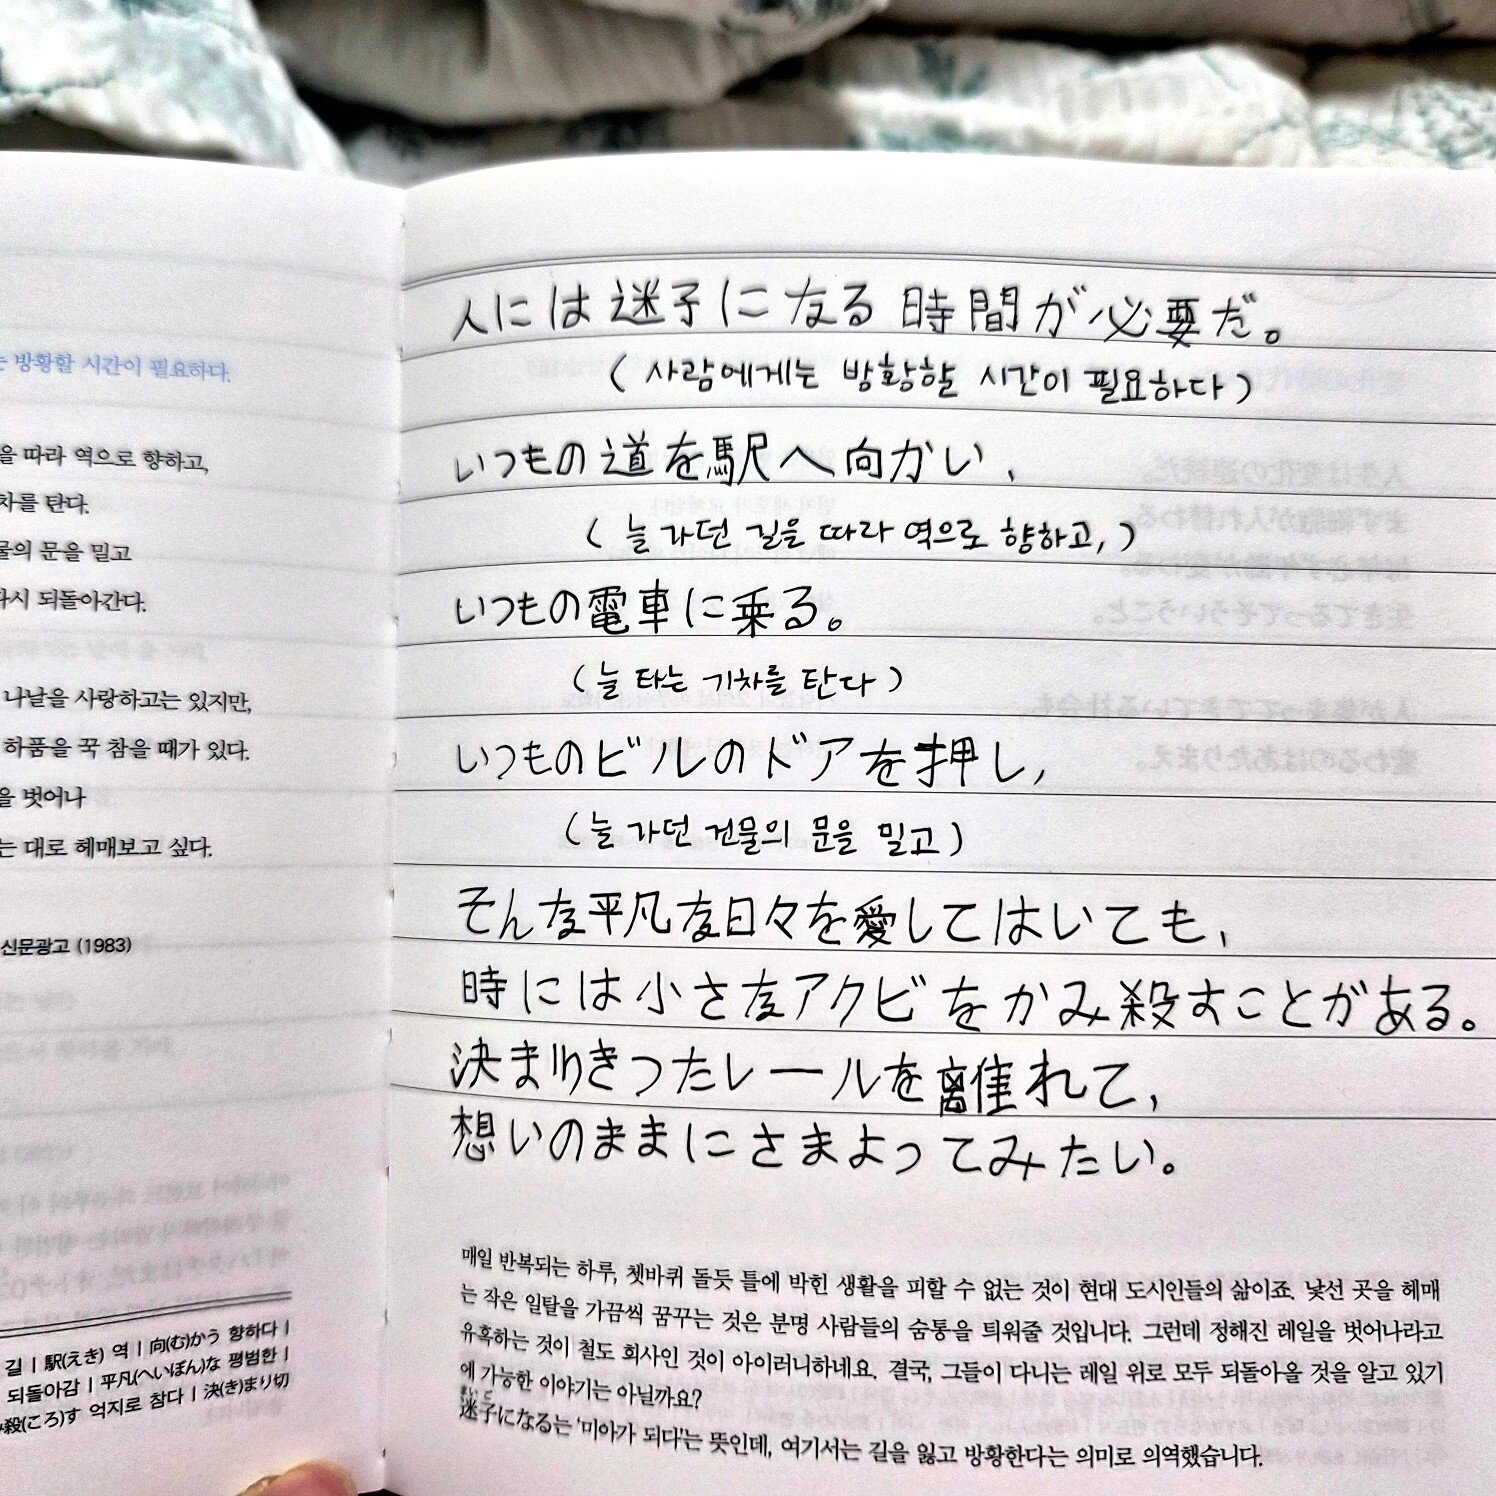 방황할 시간이 필요하다.
따라 역으로 향하고,
탄다.
문을 밀고
되돌아간다.
나날을 사랑하고는 있지만,
하품을 꾹 참을 때가 있다.
벗어나
대로 헤매보고 싶다.
新文広告 (1983)
길 | 駅(えき) 역 | 向(む)かう 향하다 |
되돌아감 | 平凡(へいぼん)な 평범한 |
殺(ころ)す 억지로 참다 | 決(き)まり切
人には迷子になる時間が必要だ。
(사람에게는 방황할 시간이 필요하다)
いつもの道を駅へ向かい、
(늘 가던 길을 따라 역으로 향하고,)
いつもの電車に乗る。
(늘 타는 기차를 탄다)
いつものビルのドアを押し,
(늘 가던 건물의 문을 밀고)
そんな平凡な日々を愛してはいても,
時には小さなアクビをかみ殺すことがある。
決まりきったレールを離れて,
想いのままにさまよってみたい。
매일 반복되는 하루, 쳇바퀴 돌듯 틀에 박힌 생활을 피할 수 없는 것이 현대 도시인들의 삶이죠. 낯선 곳을 헤매
는 작은 일탈을 가끔씩 꿈꾸는 것은 분명 사람들의 숨통을 틔워줄 것입니다. 그런데 정해진 레일을 벗어나라고
유혹하는 것이 철도 회사인 것이 아이러니하네요. 결국, 그들이 다니는 레일 위로 모두 되돌아올 것을 알고 있기
에 가능한 이야기는 아닐까요?
迷子になる는 '미아가 되다'는 뜻인데, 여기서는 길을 잃고 방황한다는 의미로 의역했습니다.